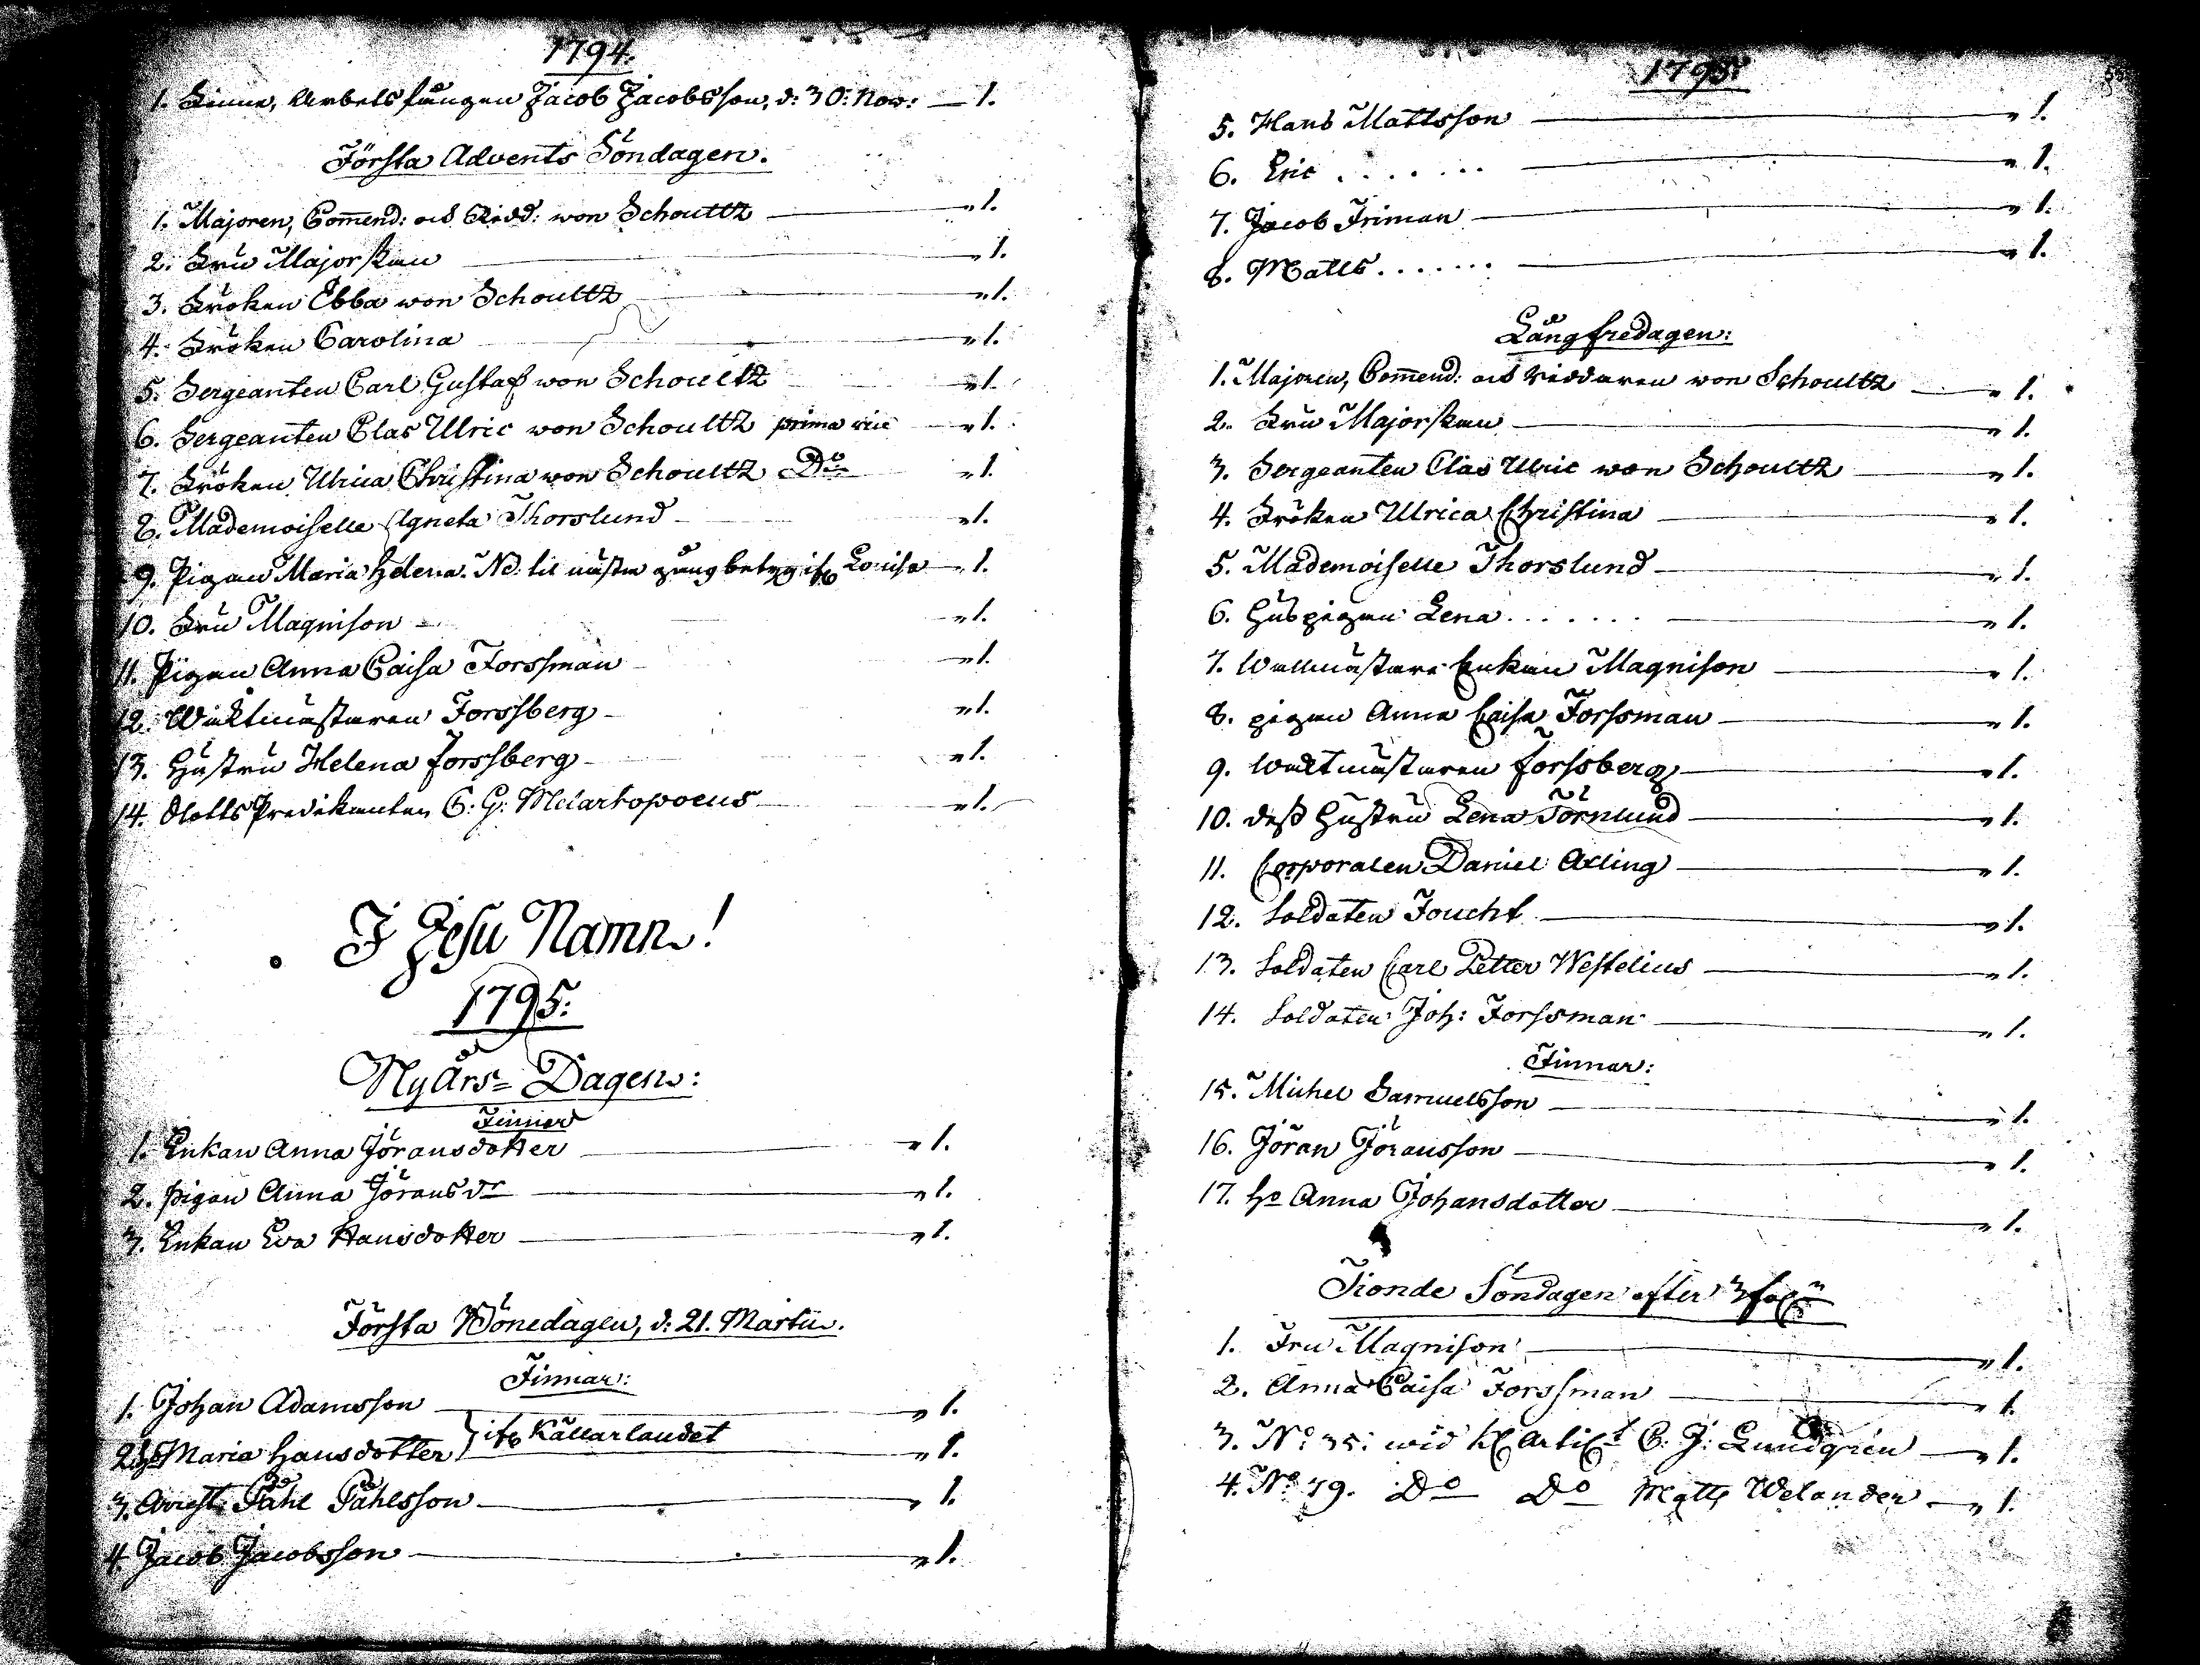 1794.
1. Finne, Arbets fången Jacob Jacobsson, d: 30: Nov: — 1.
Första Advents Söndagen.
1. Majoren, Com̅end: och Ridd: von Schoultz — " 1.
2. Fru Majorskan — " 1.
3. Fröken Ebba von Schoultz — " 1.
4. Fröken Carolina — " 1.
5. Sergeanten Carl Gustaf von Schoultz — " 1.
6. Sergeanten Clas Ulric von Schoultz prima vice — " 1.
7. Fröken Ulrica Christina von Schoultz Do — " 1.
8. Mademoiselle Agneta Thorslund — " 1.
9. Pigan Maria Helena. NB. til nästa gång betyg ifr. Lovisa — " 1.
10. Fru Magnison — " 1.
11. Pigan Anna Caisa Forssman — " 1.
12. Wacktmästaren Forssberg — " 1.
13. Hustru Helena Forssberg — " 1.
14. Slotts Predikanten C: G: Melartopoeus — " 1.
I Jesu Namn!
1795:
Nyårs= Dagen:
Finnar
1. Enkan Anna Jöransdotter — " 1.
2. pigan Anna Jörans dr — " 1.
3. Enkan Eva Hansdotter — " 1.
Första Bönedagen, d: 21. Martii.
Finnar:
1. Johan Adamsson — " 1.
2. H: Maria Hansdotter } ifr. Källarlandet — " 1.
3. Arrest: Påhl Påhlsson — " 1.
4. Jacob Jacobsson — " 1.
1795.
5. Hans Mattsson — " 1.
6. Eric . . . . . . . — " 1.
7. Jacob Friman — " 1.
8. Matts . . . . . . . — " 1.
Långfredagen:
1. Majoren, Com̅end: och Riddaren von Schoultz — " 1.
2. Fru Majorskan — " 1.
3. Sergeanten Clas Ulric von Schoultz — " 1.
4. Fröken Ulrica Christina — " 1.
5. Mademoiselle Thorslund — " 1.
6. Huspigan Lena . . . . . . . — " 1.
7. Wallmästare Enkan Magnison — " 1.
8. pigan Anna Caisa Forssman — " 1.
9. Wacktmästaren Forssberg — " 1.
10. dess Hustru Lena Törnlund — " 1.
11. Corporalen Daniel Axling — " 1.
12. Soldaten Foucht — " 1.
13. Soldaten Carl Petter Westelius — " 1.
14. Soldaten Joh: Forssman — " 1.
Finnar:
15. Michel Samuelsson — " 1.
16. Jöran Jöransson — " 1.
17. Ho Anna Johansdotter — " 1.
Tionde Söndagen efter
1. Fru Magnison — " 1.
2. Anna Caisa Forssman — " 1.
3. No 35: wid Kl Arti. C: J: Lundgrén — " 1.
4. No 79. Do Do Matts Welander — " 1.